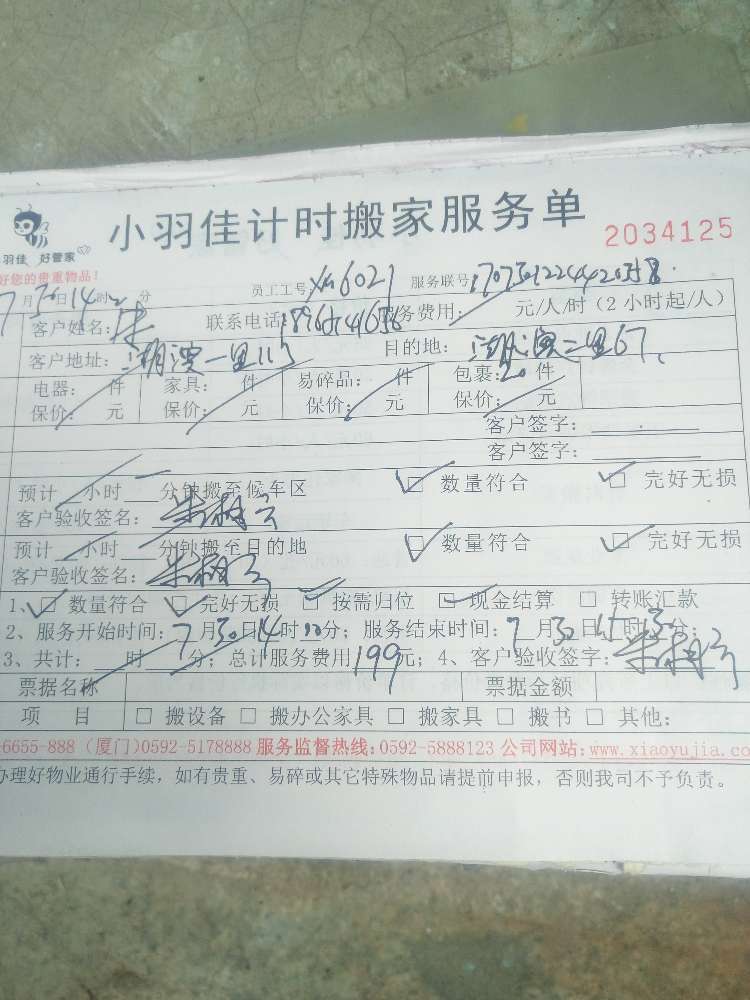 小羽佳计时搬家服务单
2034125
羽佳 好管家
好您的贵重物品!
7月30日14时 分 员工工号 服务联号:
客户姓名:朱 联系电话: 服务费用: 元/人/时(2小时起/人)
客户地址: 一里113 目的地: 二里67
电器: 件 家具: 件 易碎品: 件 包裹:20件
保价: 元 保价: 元 保价: 元 保价: 元
客户签字:
客户签字:
预计 小时 分钟搬至候车区 ☑ 数量符合 ☑ 完好无损
客户验收签名:朱
预计 小时 分钟搬至目的地 ☑ 数量符合 ☑ 完好无损
客户验收签名:朱
1、☑ 数量符合 ☑ 完好无损 ☑ 按需归位 ☑ 现金结算 □ 转账汇款
2、服务开始时间:7月30日14时00分;服务结束时间:7月30日15时30分;
3、共计: 时 分;总计服务费用199元;4、客户验收签字:朱
票据名称 票据金额
项 目 □ 搬设备 □ 搬办公家具 □ 搬家具 □ 搬书 □ 其他:
6655-888 (厦门)0592-5178888 服务监督热线:0592-5888123 公司网站:www.xiaoyujia.co
办理好物业通行手续,如有贵重、易碎或其它特殊物品请提前申报,否则我司不予负责。